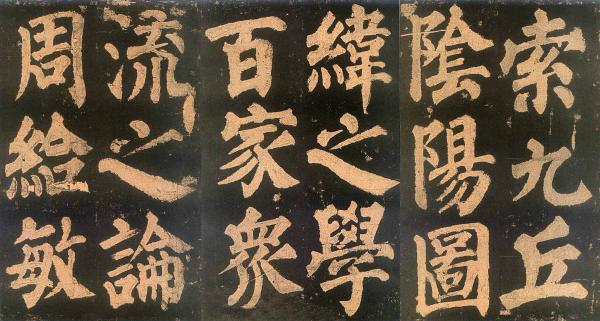 索九丘
陰陽圖
緯之學
百家衆
流之論
周給敏